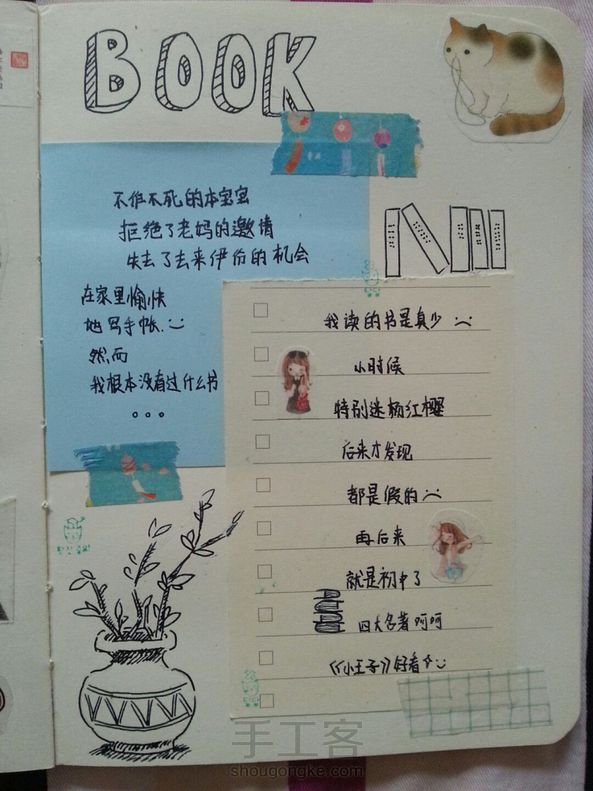 BOOK
不作不死的本宝宝
拒绝了老妈的邀请
失去了去来伊份的机会
在家里愉快
地写手帐
然而
我根本没有过什么书
。。。
我读的书是真少
小时候
特别迷杨红樱
后来才发现
都是假的
再后来
就是初中了
四大名著呵呵
《小王子》好看
手工客
shougongke.com